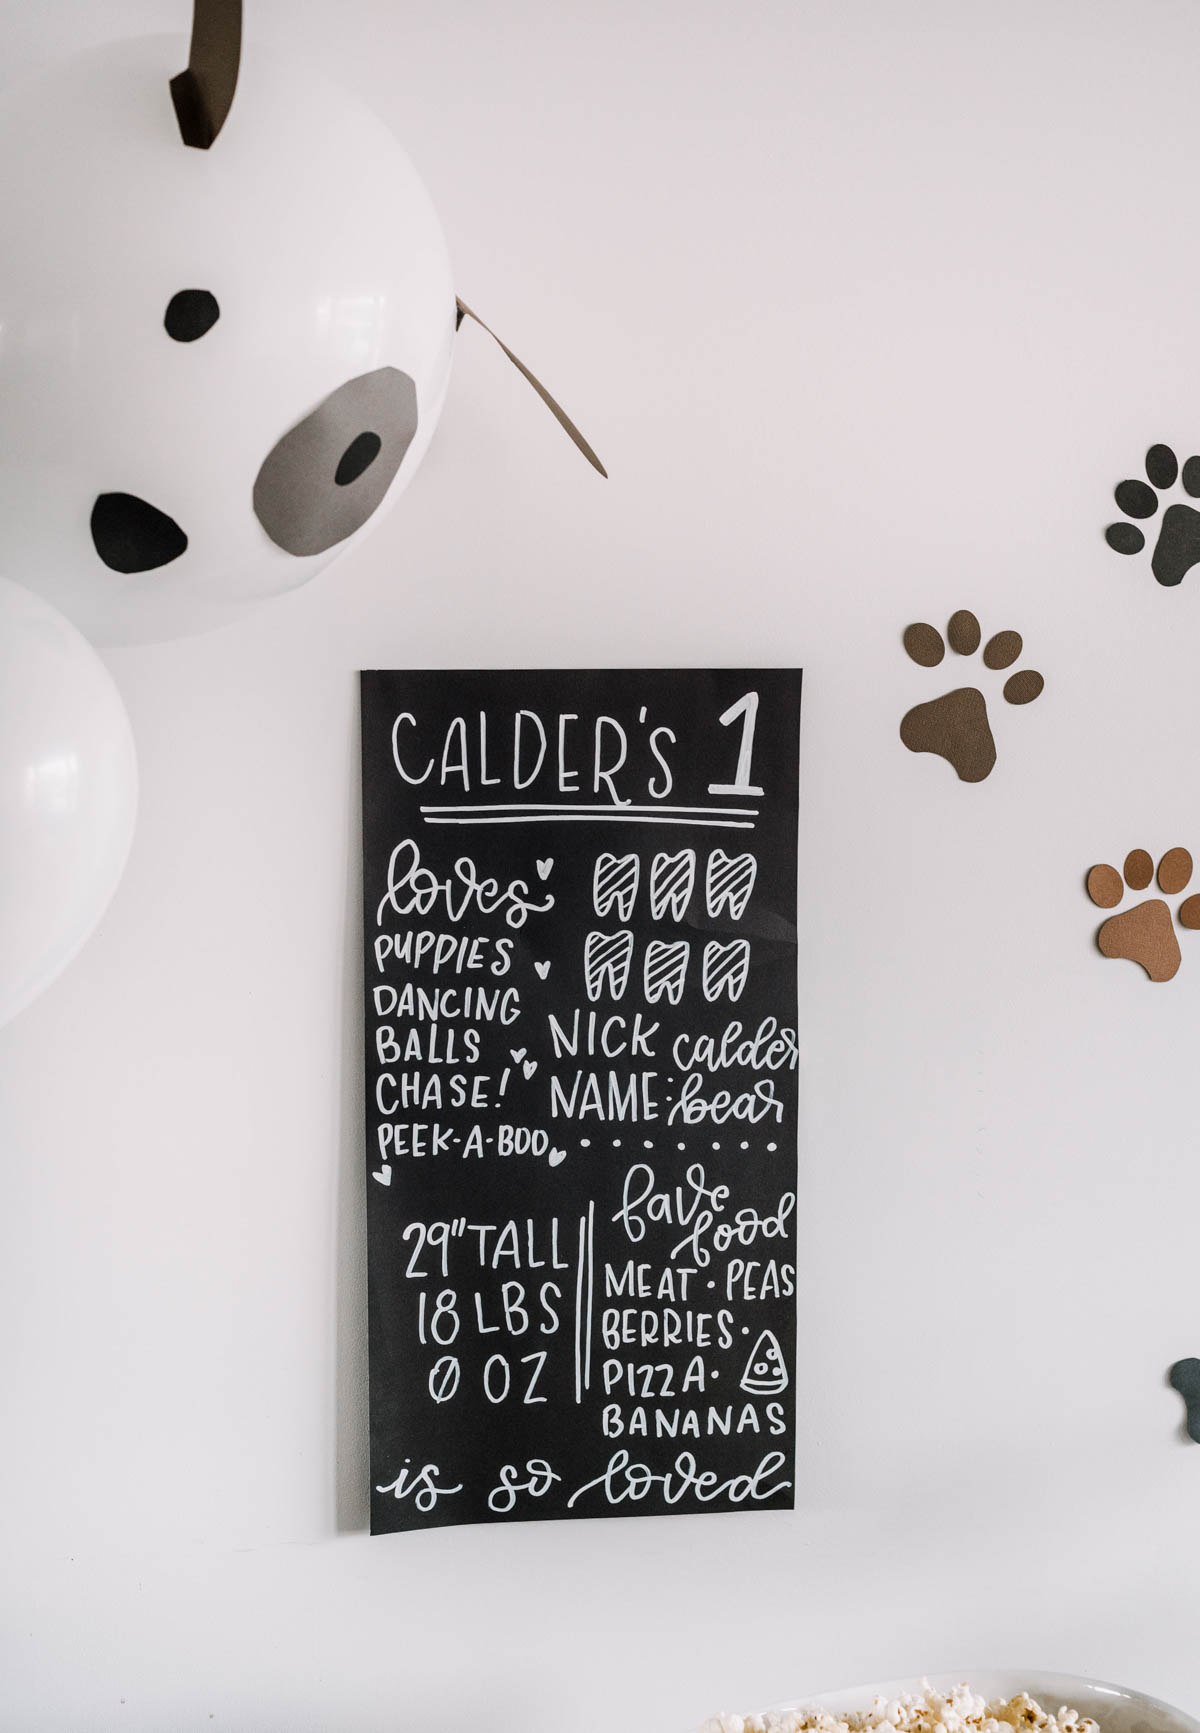 CALDER'S 1
loves
PUPPIES
DANCING
BALLS
CHASE!
PEEK-A-BOO
NICK
NAME:
calder
bear
29" TALL
18 LBS
0 OZ
fave
food
MEAT · PEAS
BERRIES ·
PIZZA ·
BANANAS
is so loved